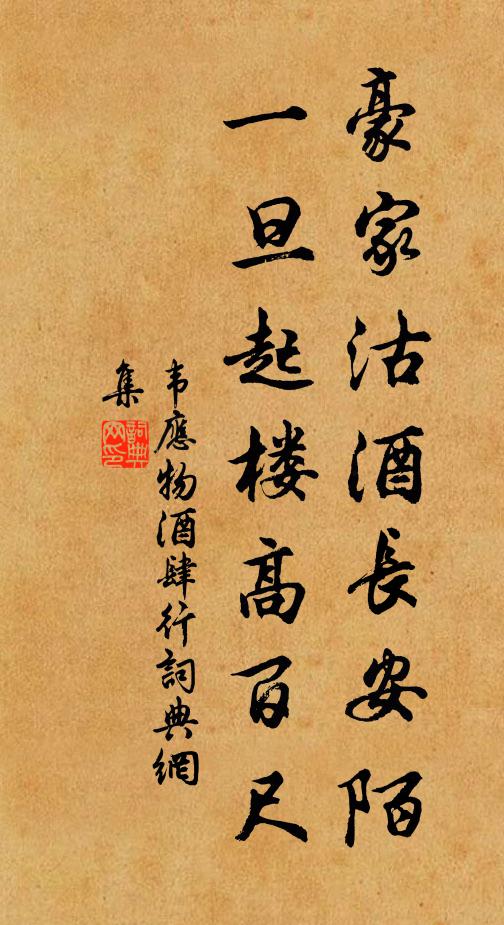 豪家沽酒長安陌
一旦起楼高百尺
韦應物酒肆行詞典網
集
詞典網印